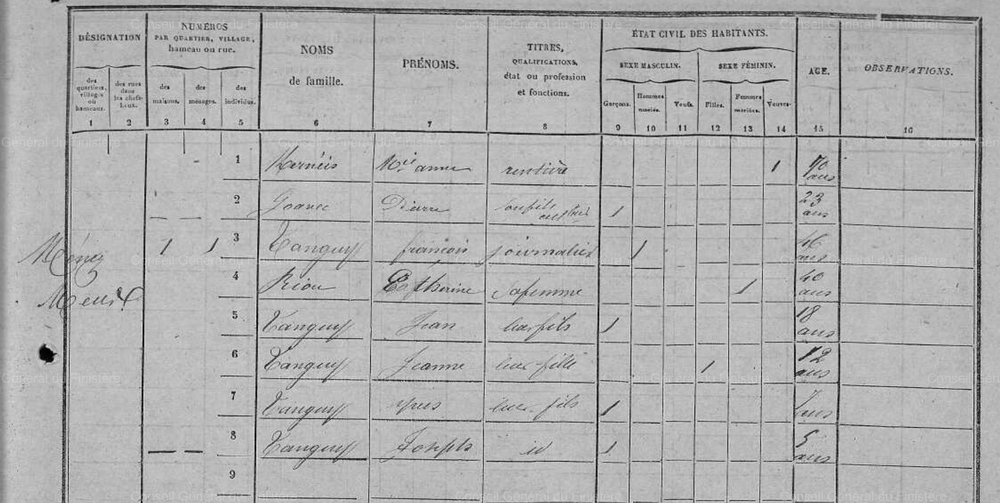 DÉSIGNATION
des quartiers, villages ou hameaux.
des rues dans les chefs-lieux.
NUMÉROS
PAR QUARTIER, VILLAGE, hameau ou rue.
des maisons.
des ménages.
des individus.
NOMS de famille.
PRÉNOMS.
TITRES, QUALIFICATIONS, état ou profession et fonctions.
ÉTAT CIVIL DES HABITANTS.
SEXE MASCULIN.
SEXE FÉMININ.
Garçons.
Hommes mariés.
Veufs.
Filles.
Femmes mariées.
Veuves.
AGE.
OBSERVATIONS.
1 2 3 4 5 6 7 8 9 10 11 12 13 14 15 16
1 Kernéis Mie anne 1 70 ans
2 Pierre 1 23 ans
Ménez 1 1 3 Tanguy françois journalier 1 46 ans
4 Riou Catherine sa femme 1 40 ans
5 Tanguy Jean leur fils 1 18 ans
6 Tanguy Jeanne leur fille 1 12 ans
7 Tanguy yves leur fils 1 ans
8 Tanguy Joseph id 1 5 ans
9